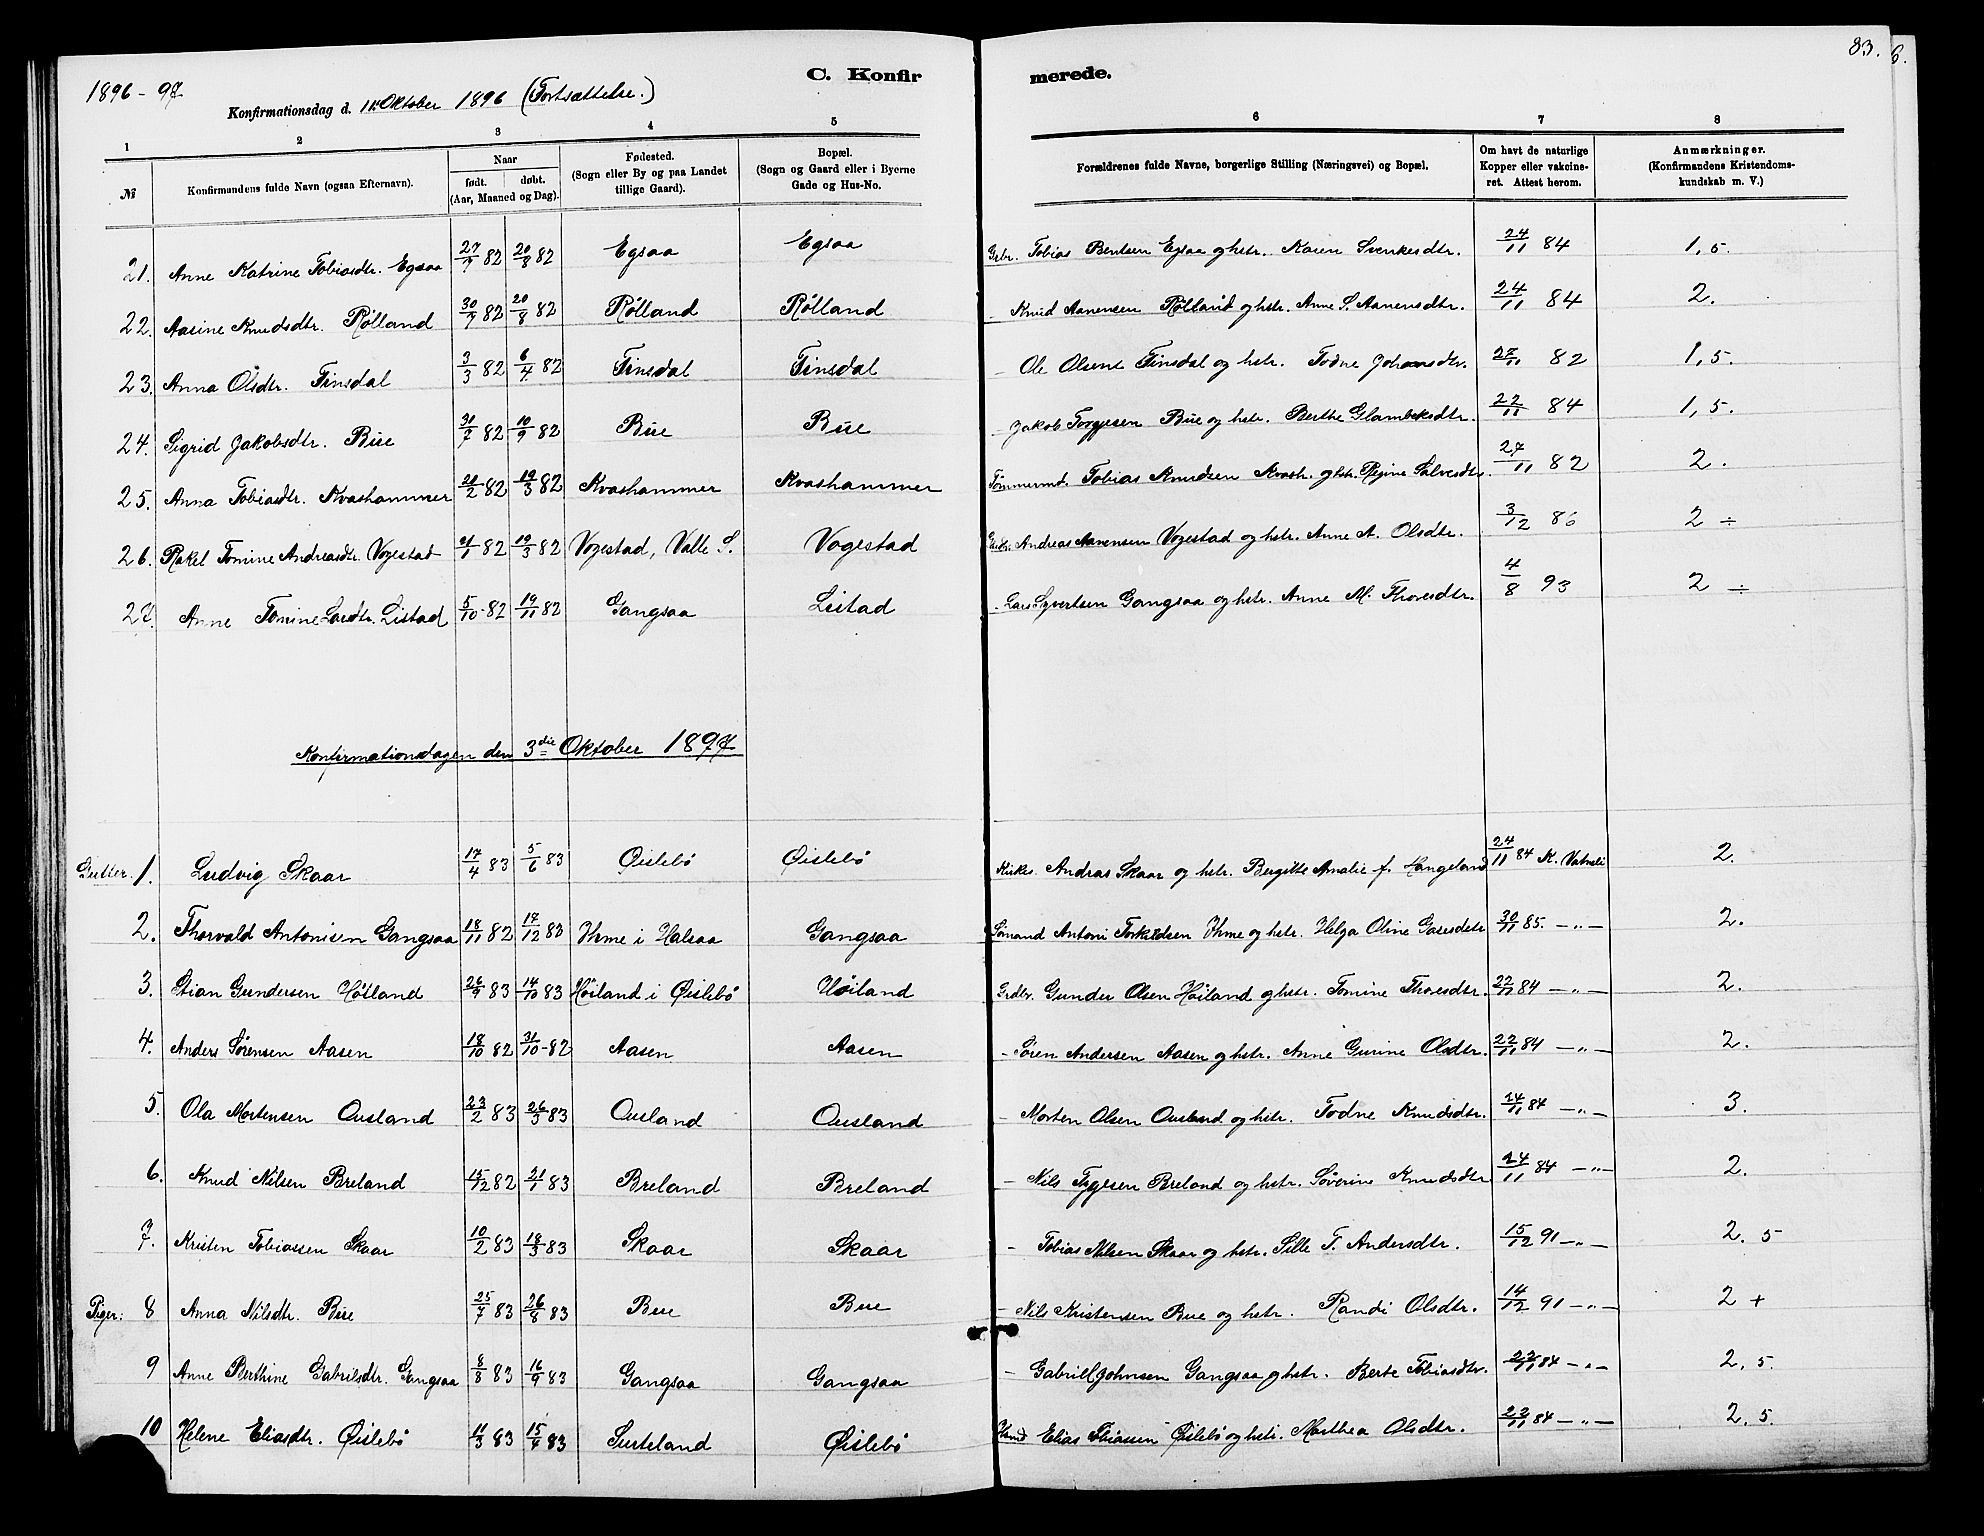 1896-97
C. Konfirmerede.
83.
6.
Konfirmationsdag d. 11 Oktober 1896 (Fortsættelse.)
1 2 3 4 5 6 7 8
№ Konfirmandens fulde Navn (ogsaa Efternavn). Naar født. døbt. (Aar, Maaned og Dag). Fødested. (Sogn eller By og paa Landet tillige Gaard). Bopæl. (Sogn og Gaard eller i Byerne Gade og Hus-No. Forældrenes fulde Navne, borgerlige Stilling (Næringsvei) og Bopæl. Om havt de naturlige Kopper eller vakcineret. Attest herom. Anmærkninger. (Konfirmandens Kristendomskundskab m. V.)
21. Anne Katrine Tobiasdtr. Egsaa 27/7 82 20/8 82 Egsaa Egsaa Grbr. Tobias Bentsen Egsaa og hstr. Karen Svenkesdtr. 24/11 84 1,5.
22. Aasine Knudsdtr. Rölland 30/7 82 20/8 82 Rölland Rölland - Knud Aanensen Rölland og hstr. Anne S. Aanensdtr. 24/11 84 2.
23. Anna Olsdtr. Finsdal 3/3 82 6/4 82 Finsdal Finsdal - Ole Olsen Finsdal og hstr. Todne Johansdtr. 27/11 82 1,5.
24. Sigrid Jakobsdtr. Bue 31/7 82 10/9 82 Bue Bue - Jakob Torgjesen Bue og hstr. Berthe Glambeksdtr. 22/11 84 1,5.
25. Anna Tobiasdtr. Kvashammer 21/2 82 19/3 82 Kvashammer Kvashammer Tömmermd. Tobias Knudsen Kvash. og hstr. Regine Salvesdtr. 27/11 82 2.
26. Rakel Tomine Andreasdtr. Vogestad 21/1 82 19/3 82 Vogestad, Valle S. Vogestad Andreas Aanensen Vogestad og hstr. Anne A. Olsdtr. 3/12 86 2 ÷
27. Anne Tomine Larsdtr. Listad 5/10-82 19/11 82 Gangsaa Listad - Lars Syvertsen Gangsaa og hstr. Anne M. Thoresdtr. 4/8 93 2 ÷
Konfirmationsdagen den 3die Oktober 1897
Gutter. 1. Ludvig Skaar 17/4 83 5/6 83 Øislebö Øislebö Kirkes. Andras Skaar og hstr. Bergitte Amalie f. Hangeland 24/11 84 K. Vatneli 2.
2. Thorvald Antonisen Gangsaa 18/11 82 17/12 83 Ihme i Halsaa Gangsaa Sömand Antoni Torkildsen Ihme og hstr. Helga Oline Gasesdtr 30/11 85. -"- 2.
3. Stian Gundersen Höiland 26/9 83 14/10 83 Höiland i Øislebö Höiland Grdbr. Gunder Olsen Höiland og hstr. Tomine Thoresdtr. 22/11 84 -"- 2.
4. Anders Sörensen Aasen 18/10 82 31/10-82 Aasen Aasen - Sören Andersen Aasen og hstr. Anne Gurine Olsdtr. 22/11 84 -"- 2.
5. Ola Mortensen Ousland 23/2 83 26/3 83 Ousland Ousland - Morten Olsen Ousland og hstr. Todne Knudsdtr. 24/11 84 -"- 3.
6. Knud Nilsen Breland 15/12 82 21/1 83 Breland Breland - Nils Tygesen Breland og hstr. Söverine Knudsdtr 24/11 84 -"- 2.
7. Kristen Tobiassen Skaar 10/2 83 18/3 83 Skaar Skaar - Tobias Nilsen Skaar og hstr. Sille T. Andersdtr. 15/12 91 -"- 2.5
Piger: 8 Anna Nilsdtr. Bue 25/7 83 26/8 83 Bue Bue - Nils Kristensen Bue og hstr. Randi Olsdtr. 14/12 91 -"- 2 +
9 Anne Berthine Gabrilsdtr. Gangsaa 8/8 83 16/9 83 Gangsaa Gangsaa - Gabriel Johnsen Gangsaa og hstr. Berte Tobiasdtr. 22/11 84 -"- 2,5.
10 Helene Eliasdtr. Øislebö 11/3 83 15/4 83 Surteland Øislebö Elias Tobiassen Øislebö og hstr. Marthea Olsdtr. 22/11 84 -"- 2,5.